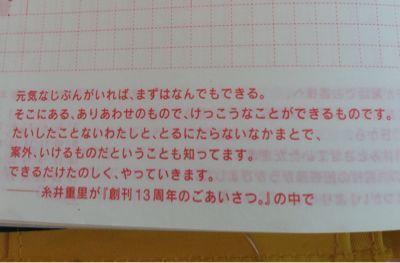 元気なじぶんがいれば、まずはなんでもできる。
そこにある、ありあわせのもので、けっこうなことができるものです。
たいしたことないわたしと、とるにたらないなかまとで、
案外、いけるものだということも知ってます。
できるだけたのしく、やっていきます。
――糸井重里が『創刊13周年のごあいさつ。』の中で